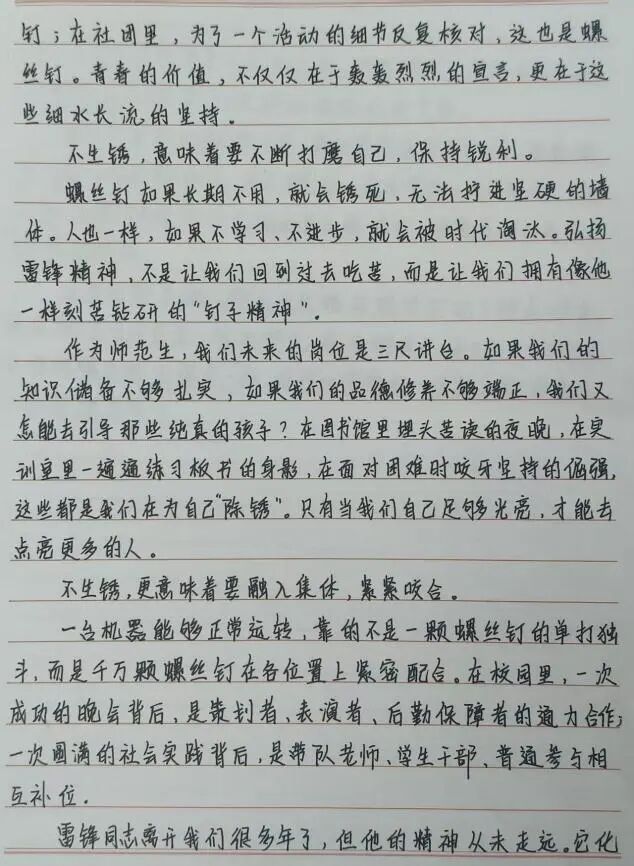 钉；在社团里，为了一个活动的细节反复核对，这也是螺
丝钉。青春的价值，不仅仅在于轰轰烈烈的宣言，更在于这
些细水长流的坚持。
不生锈，意味着要不断打磨自己，保持锐利。
螺丝钉如果长期不用，就会锈死，无法拧进坚硬的墙
体。人也一样，如果不学习、不进步，就会被时代淘汰。弘扬
雷锋精神，不是让我们回到过去吃苦，而是让我们拥有像他
一样刻苦钻研的“钉子精神”。
作为师范生，我们未来的岗位是三尺讲台。如果我们的
知识储备不够扎实，如果我们的品德修养不够端正，我们又
怎能去引导那些纯真的孩子？在图书馆里埋头苦读的夜晚，在实
训室里一遍遍练习板书的身影，在面对困难时咬牙坚持的倔强，
这些都是我们在为自己“除锈”。只有当我们自己足够光亮，才能去
点亮更多的人。
不生锈，更意味着要融入集体，紧紧咬合。
一台机器能够正常运转，靠的不是一颗螺丝钉的单打独
斗，而是千万颗螺丝钉在各位置上紧密配合。在校园里，一次
成功的晚会背后，是策划者、表演者、后勤保障者的通力合作；
一次圆满的社会实践背后，是带队老师、学生干部、普通参与相
互补位。
雷锋同志离开我们很多年了，但他的精神从未走远。它化